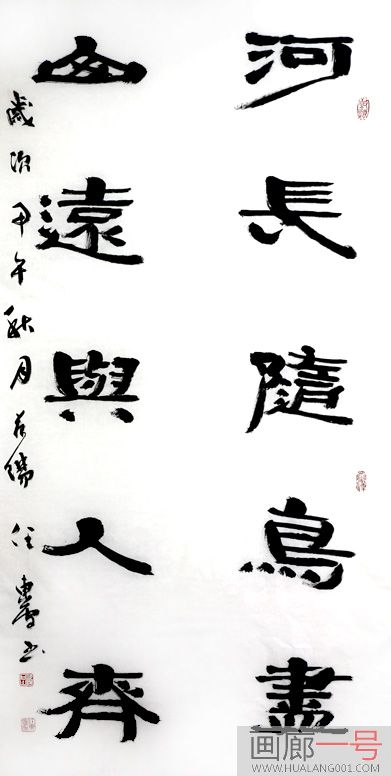 河長隨鳥盡
山遠與人齊
歲次甲午秋月
画廊一号
WWW.HUALANG001.COM